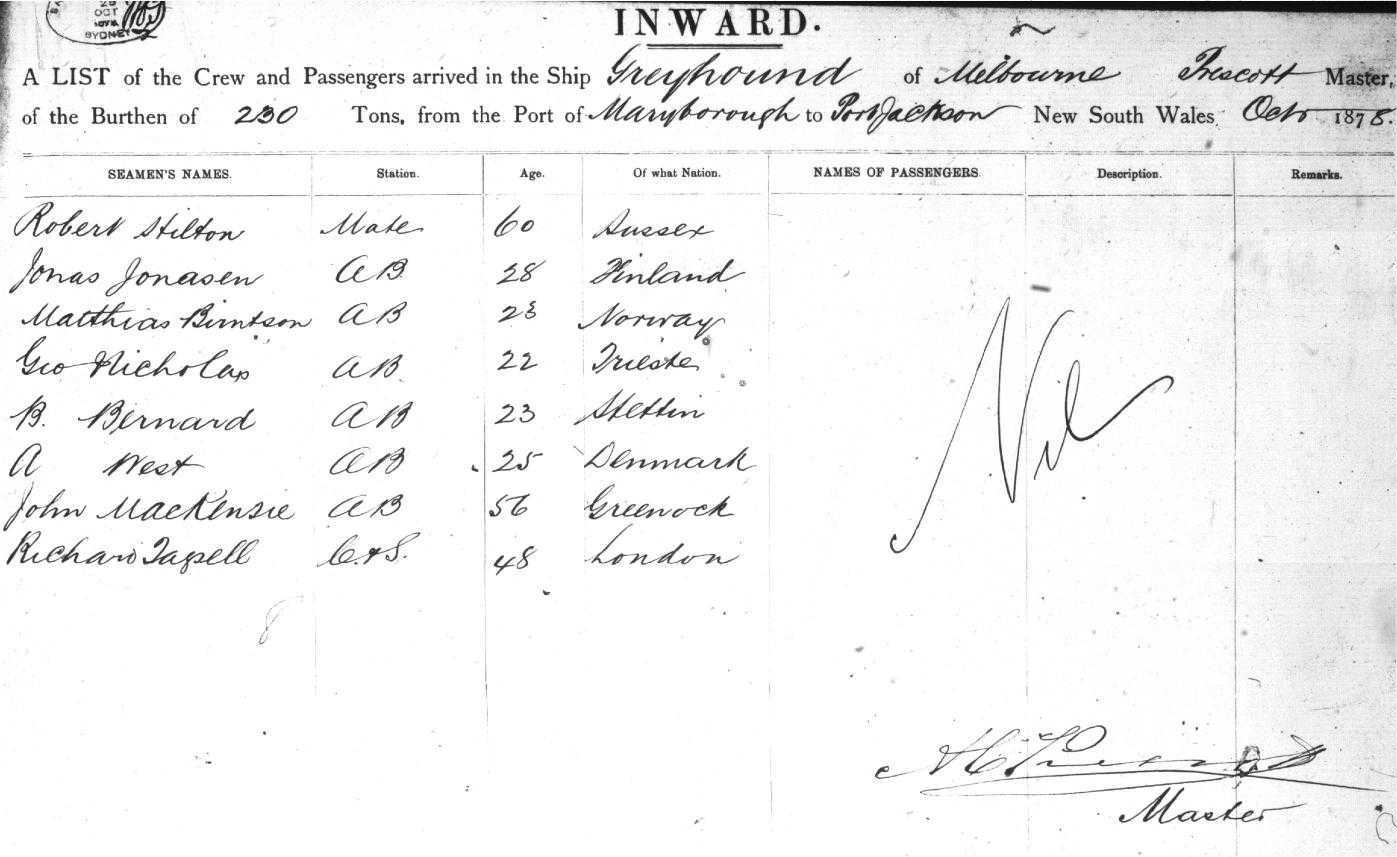 OCT
SYDNEY
INWARD.
A LIST of the Crew and Passengers arrived in the Ship Greyhound of Melbourne Prescott Master,
of the Burthen of 230 Tons, from the Port of Maryborough to Port Jackson New South Wales Octr 1878.
SEAMEN'S NAMES. Station. Age. Of what Nation. NAMES OF PASSENGERS. Description. Remarks.
Robert Hilton Mate 60 Sussex
Jonas Jonasen AB 28 Finland
Matthias Berntson AB 23 Norway
Geo Nicholas AB 22 Trieste
B. Bernard AB 23 Stettin
A West AB 25 Denmark
John MacKensie AB 56 Greenock
Richard Tapell C.&S. 48 London
Nil
8
Master